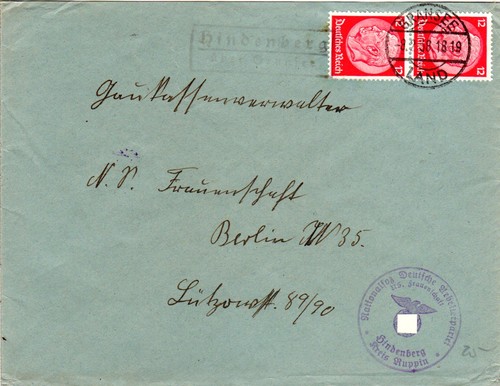 Hindenberg
Deutsches Reich
12
12
Deutsches Reich
12
GRANSEE
38.18-19
LAND
Gaukassenverwalter
N.S. Frauenschaft
Berlin W35.
Lützowst. 89/90
Nationalsoz. Deutsche Arbeiterpartei
NS. Frauenschaft
Hindenberg
Kreis Ruppin
20-